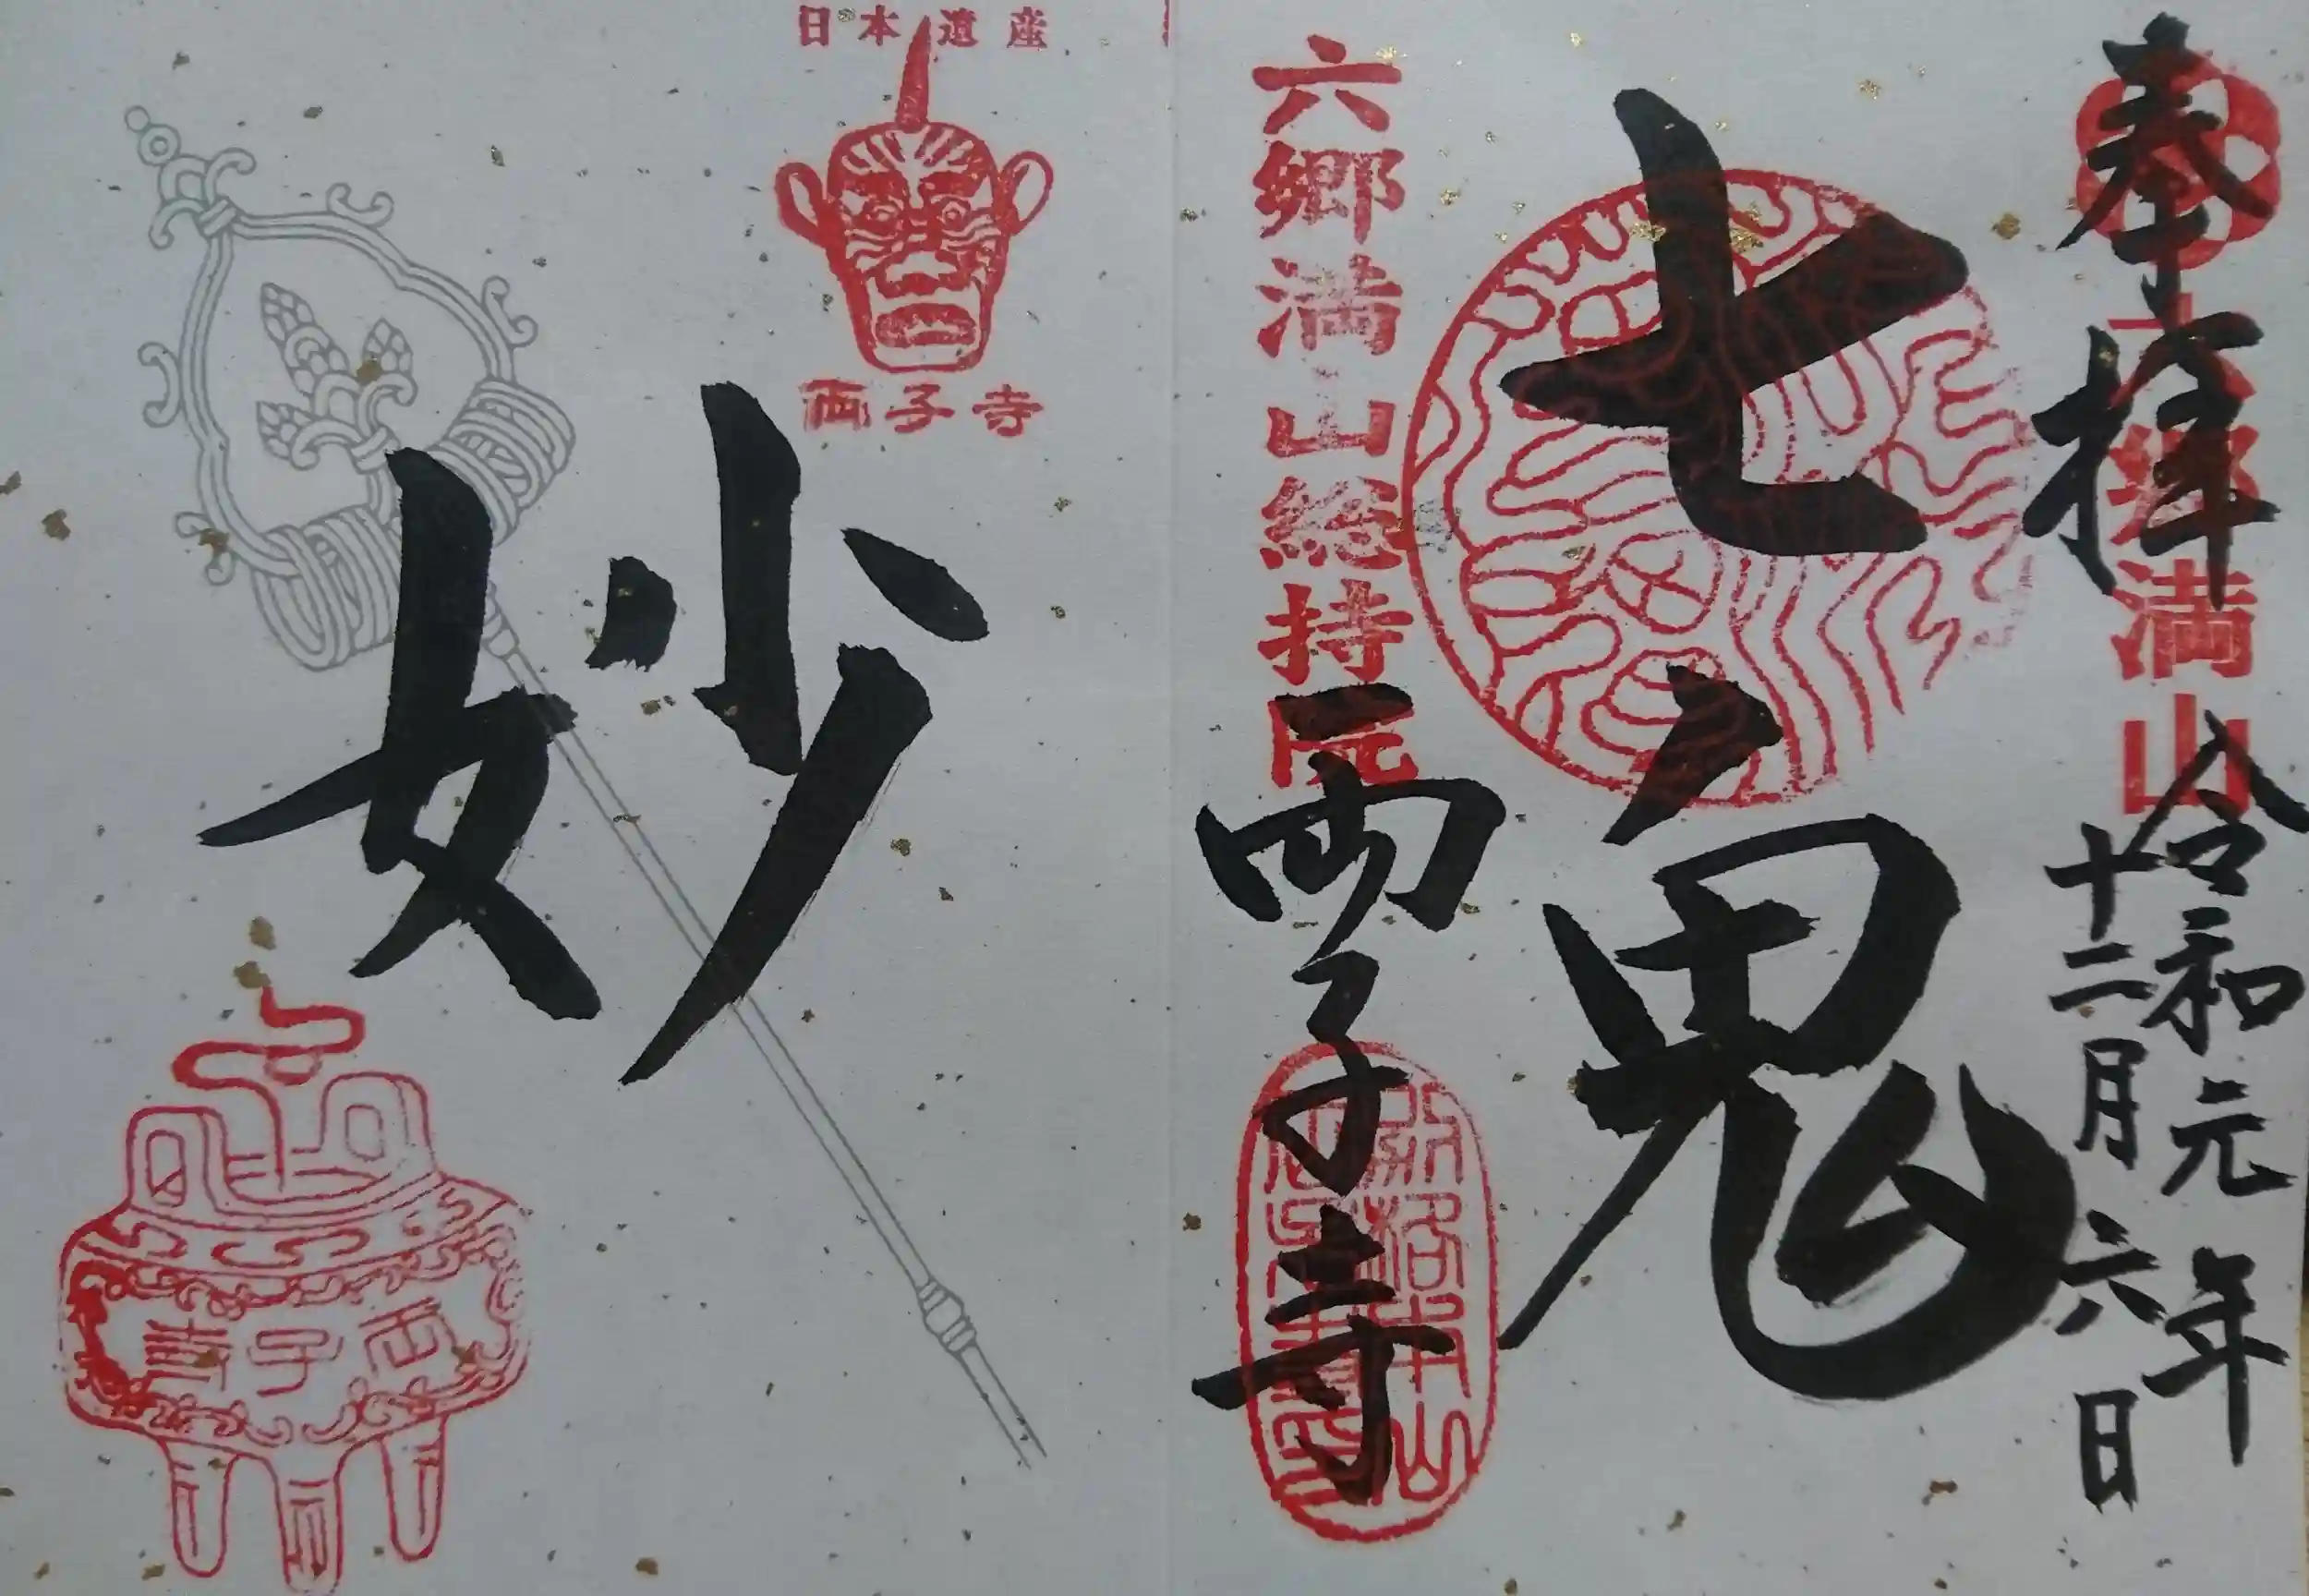 奉拝
六郷満山
令和元年
十二月六日
七鬼
六郷満山総持院
両子寺
日本遺産
両子寺
妙
両子寺